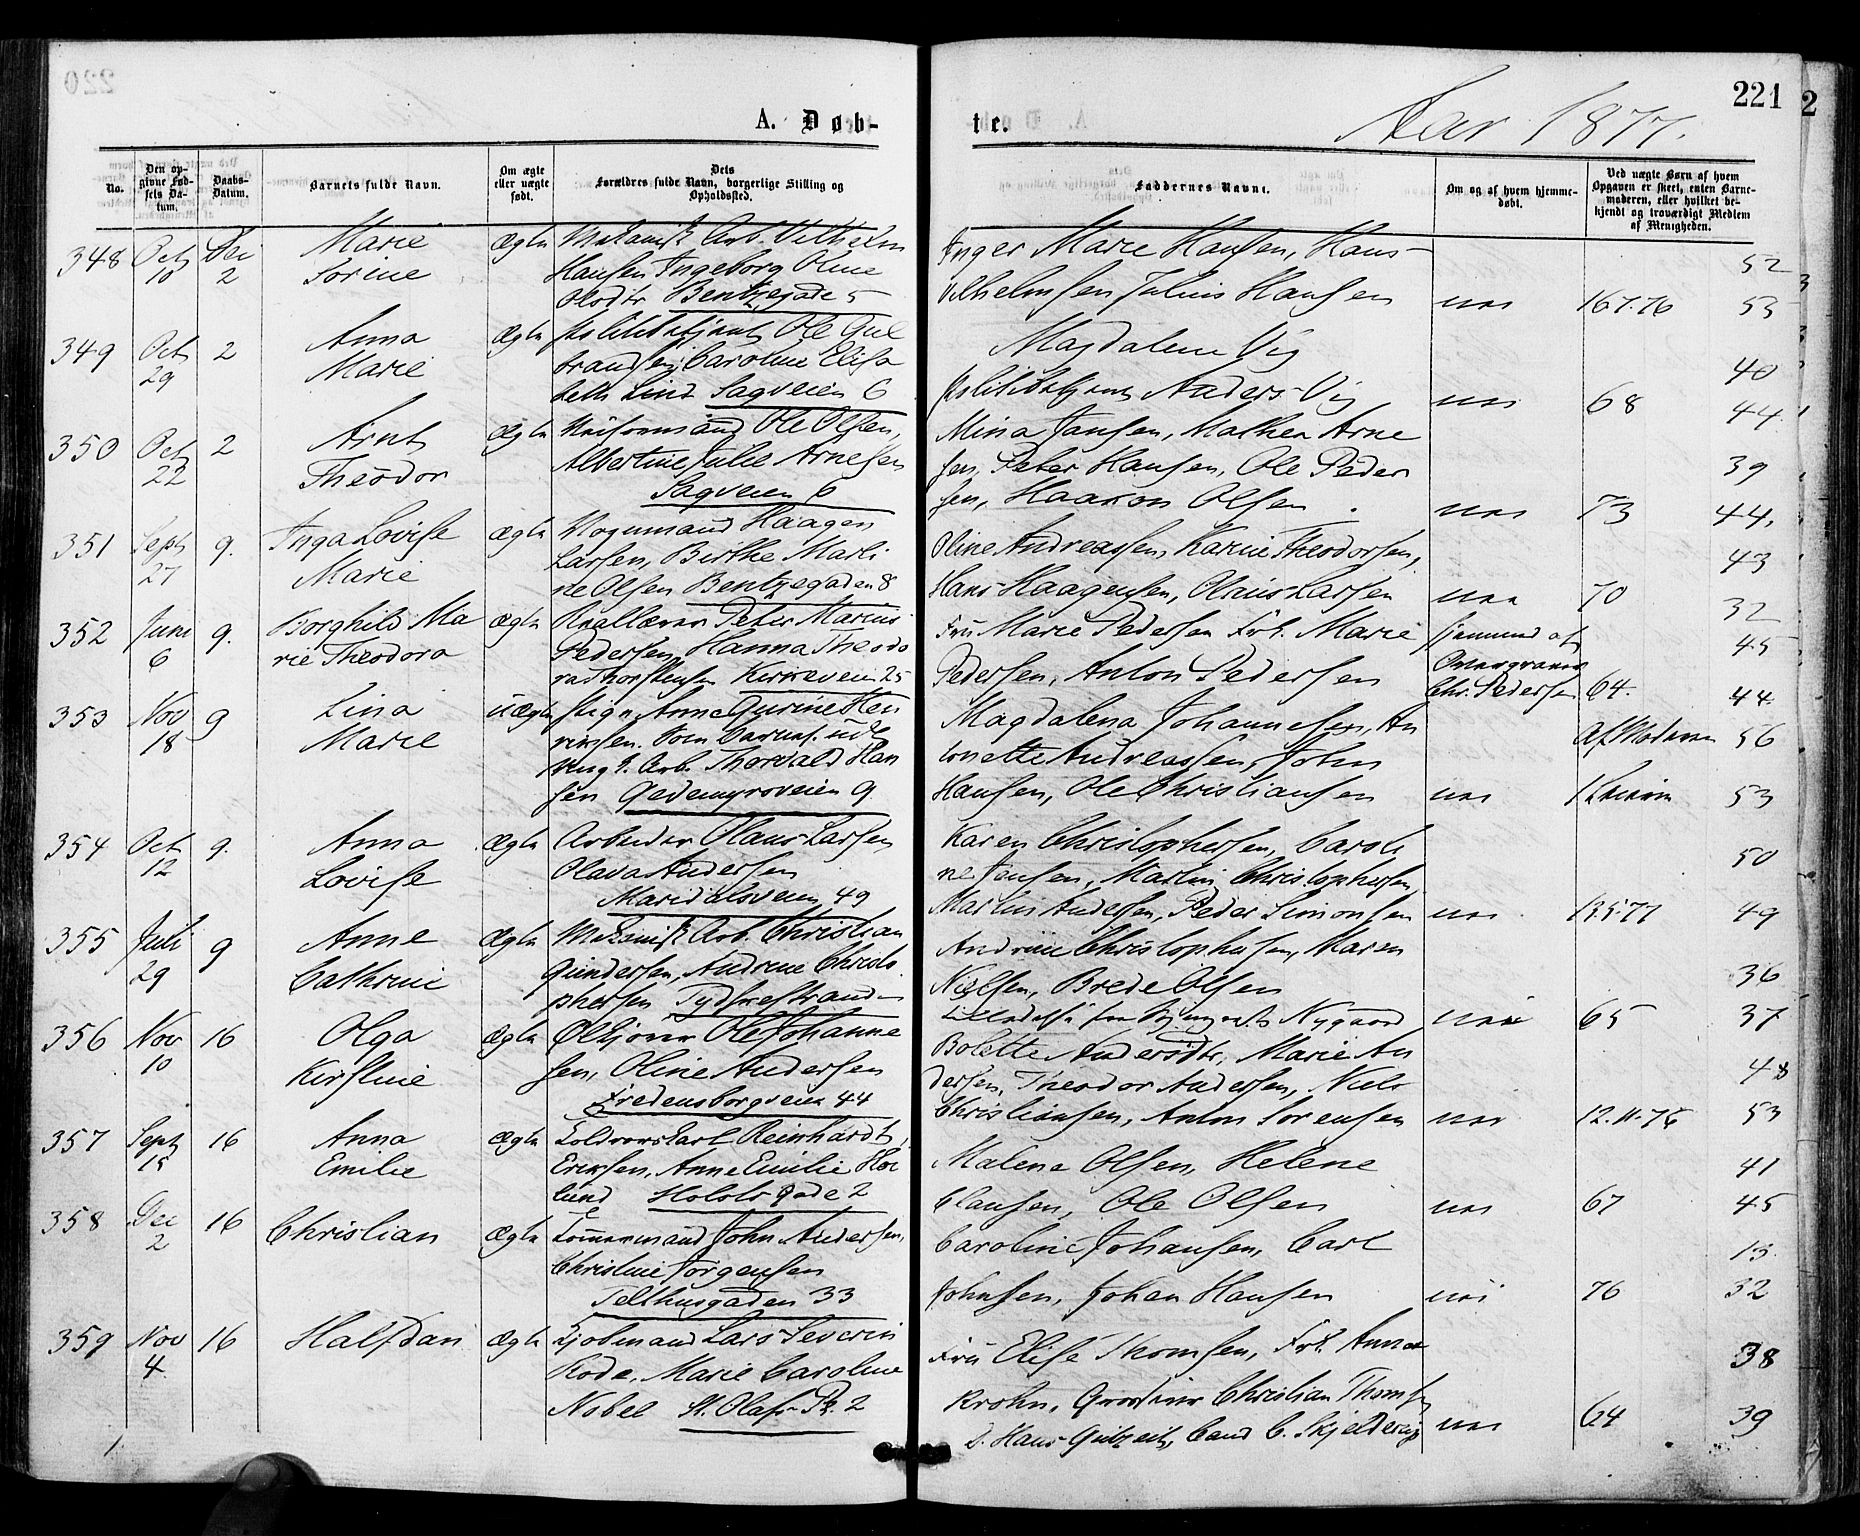 220
221
A. Døb-
te.
Aar 1877.
No.
Den opgivne Fødsels Datum.
Daabs-Datum.
Barnets fulde Navn.
Om ægte eller uægte født.
Dets Forældres fulde Navn, borgerlige Stilling og Opholdssted.
Faddernes Navne.
Om og af hvem hjemmedøbt.
Ved uægte Børn af hvem Opgaven er skeet, enten Barnemoderen, eller hvilket bekjendt og troværdigt Medlem af Menigheden.
348 Oct 10 Dec 2 Marie Sorine ægte Mekanisk Arb. Vilhelm
Hansen Ingeborg Oline
Bentzegade 5
Inger Marie Hansen, Hans
Vilhelmsen Julius Hansen 52 53
349 Oct 29 2 Anna Marie ægte Politibetjent Ole Gul
brandsen, Caroline Elisa
beth Lind Sagveien 6
Magdalene Vig
Politibetjent Anders Vig 68 40 44
350 Oct 22 2 Arnt Theodor ægte Ole Olsen,
Albertine Julie Arnesen
Sagveien 6
Mina Jansen, Mathea Arne
sen, Peter Hansen, Ole Peder
sen, Haakon Olsen 73 39 44
351 Sept 27 9. Inga Lovise Marie ægte Vognmand Haagen
Larsen, Birthe Marli
ne Olsen Bentzegaden 8
Oline Andreassen, Karine Theodorsen,
Hans Haagensen, Olaus Larsen 70 43
352 Juni 6 9. Borghild Ma
rie Theodora ægte Peter Marius
Pedersen Hanna Theodo
ra Thorstensen Kirkeveien 25
Fru Marie Pedersen Frk. Marie
Pedersen, Anton Pedersen
Chr. Pedersen 64. 32 45
353 Nov 18 9 Lina Marie uægte Pige Anne Gurine Hen
riksen. Som Barnef. udl.
Arb. Thorvald Han
sen Gedemyrsveien 9
Magdalena Johannesen, An
tonette Andreassen, John
Hansen, Ole Christiansen
Af Moderen 44 56 53
354 Oct 12 9. Anna Lovise ægte Arbeider Olaus Larsen
Olava Andersen
Maridalsveien 49
Karen Christophersen, Caroli
ne Jensen, Martin Christophersen,
Martin Andersen, Peder Simonsen 50 49
355 Juli 29 9 Anne Cathrine ægte Mekanisk Arb. Christian
Gundersen, Andrine Christo
phersen Tydskestranden
Andrine Christophersen, Maren
Nielsen, Brede Olsen
Nygaard 65 36 37
356 Nov 10 16 Olga Kirstine ægte Ole Johanne
sen, Oline Andersen
Fredensborgveien 44
Bolette Andersdtr, Marie An
dersen, Theodor Andersen, Niels
Christiansen, Anton Sorensen 48 53
357 Sept 15 16 Anna Emilie ægte Reinhardt
Eriksen, Anne Emilie
lund Holsts Gade 2
Malene Olsen, Helene
Clausen, Ole Olsen 67 41 45
358 Dec 2 16 Christian ægte Tømmermand John Andersen,
Christine Jorgensen
Telthusgaden 33
Caroline Johansen, Carl
Johnsen, Johan Hansen 76 32
359 Nov 4 16 Halfdan ægte Kjobmand Lars Severin
Rode, Marie Caroline
Nobel St. Olafs Pl. 2
Fru Elise Thomsen, Frk. Anna
Krohn, Grosserer Christian Thomsen
Hans Gutzeit, Cand C. Skjelderup 64 38 39